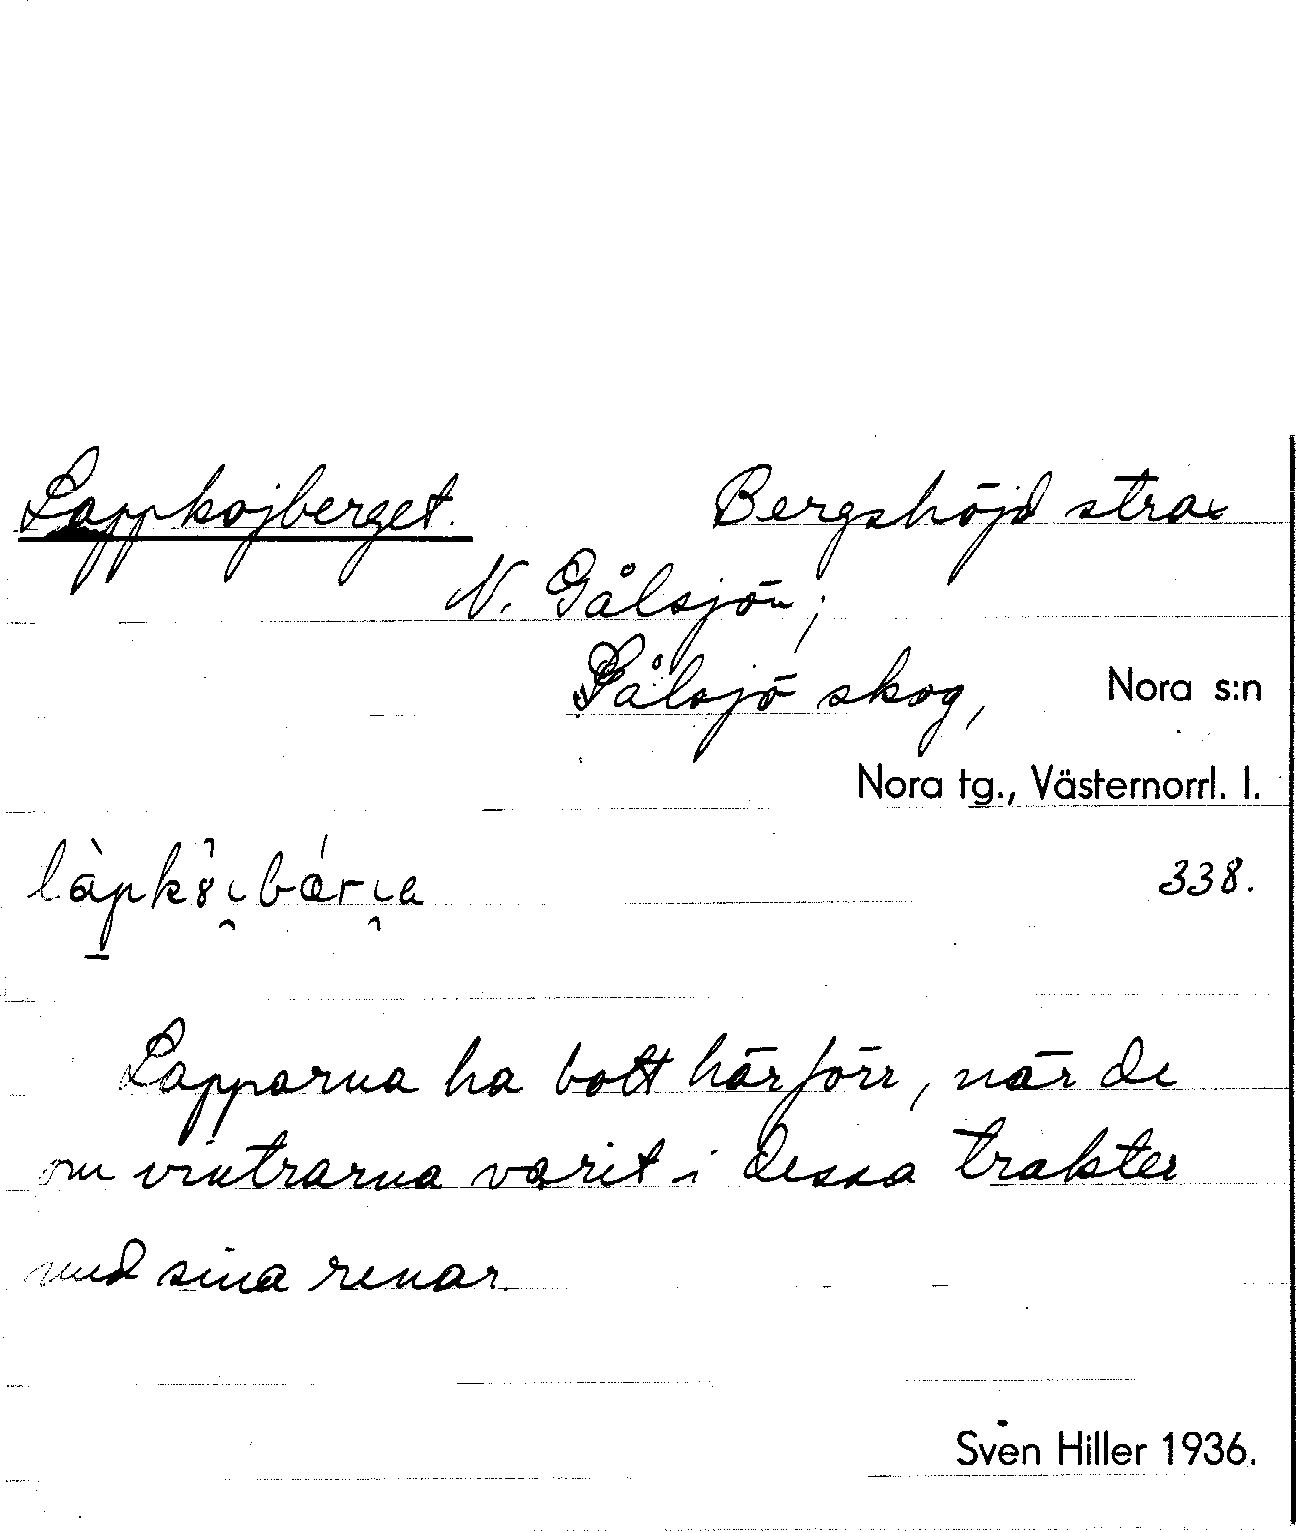 Lappkojberget. Bergshöjd strax
N. Gålsjön;
Gålsjö skog, Nora s:n
Nora tg., Västernorrl. l.
338.
Lapparna ha bott här förr, när de
om vintrarna varit i dessa trakter
med sina renar.
Sven Hiller 1936.